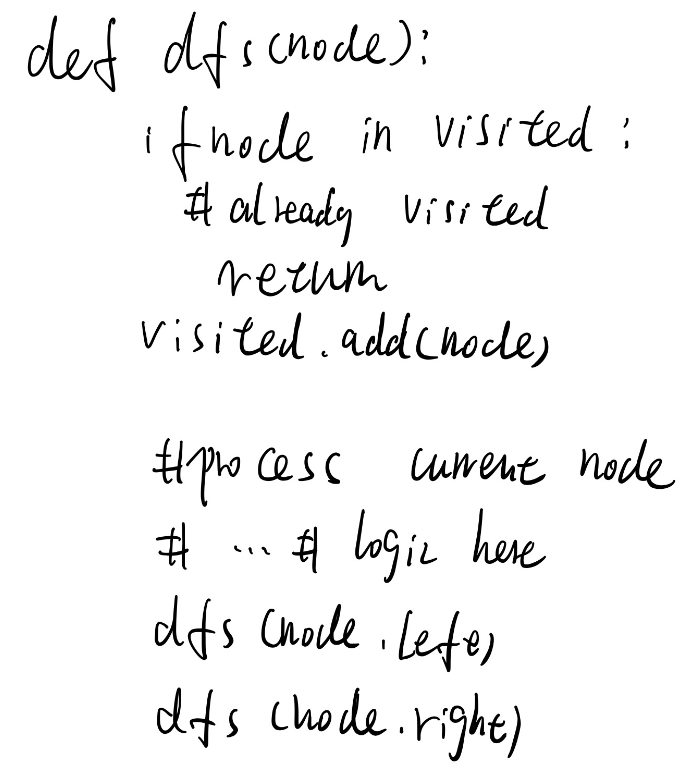 def dfs(node):
if node in visited:
# already visited
return
visited.add(node)
#process current node
# ... # logic here
dfs (node.left)
dfs (node.right)